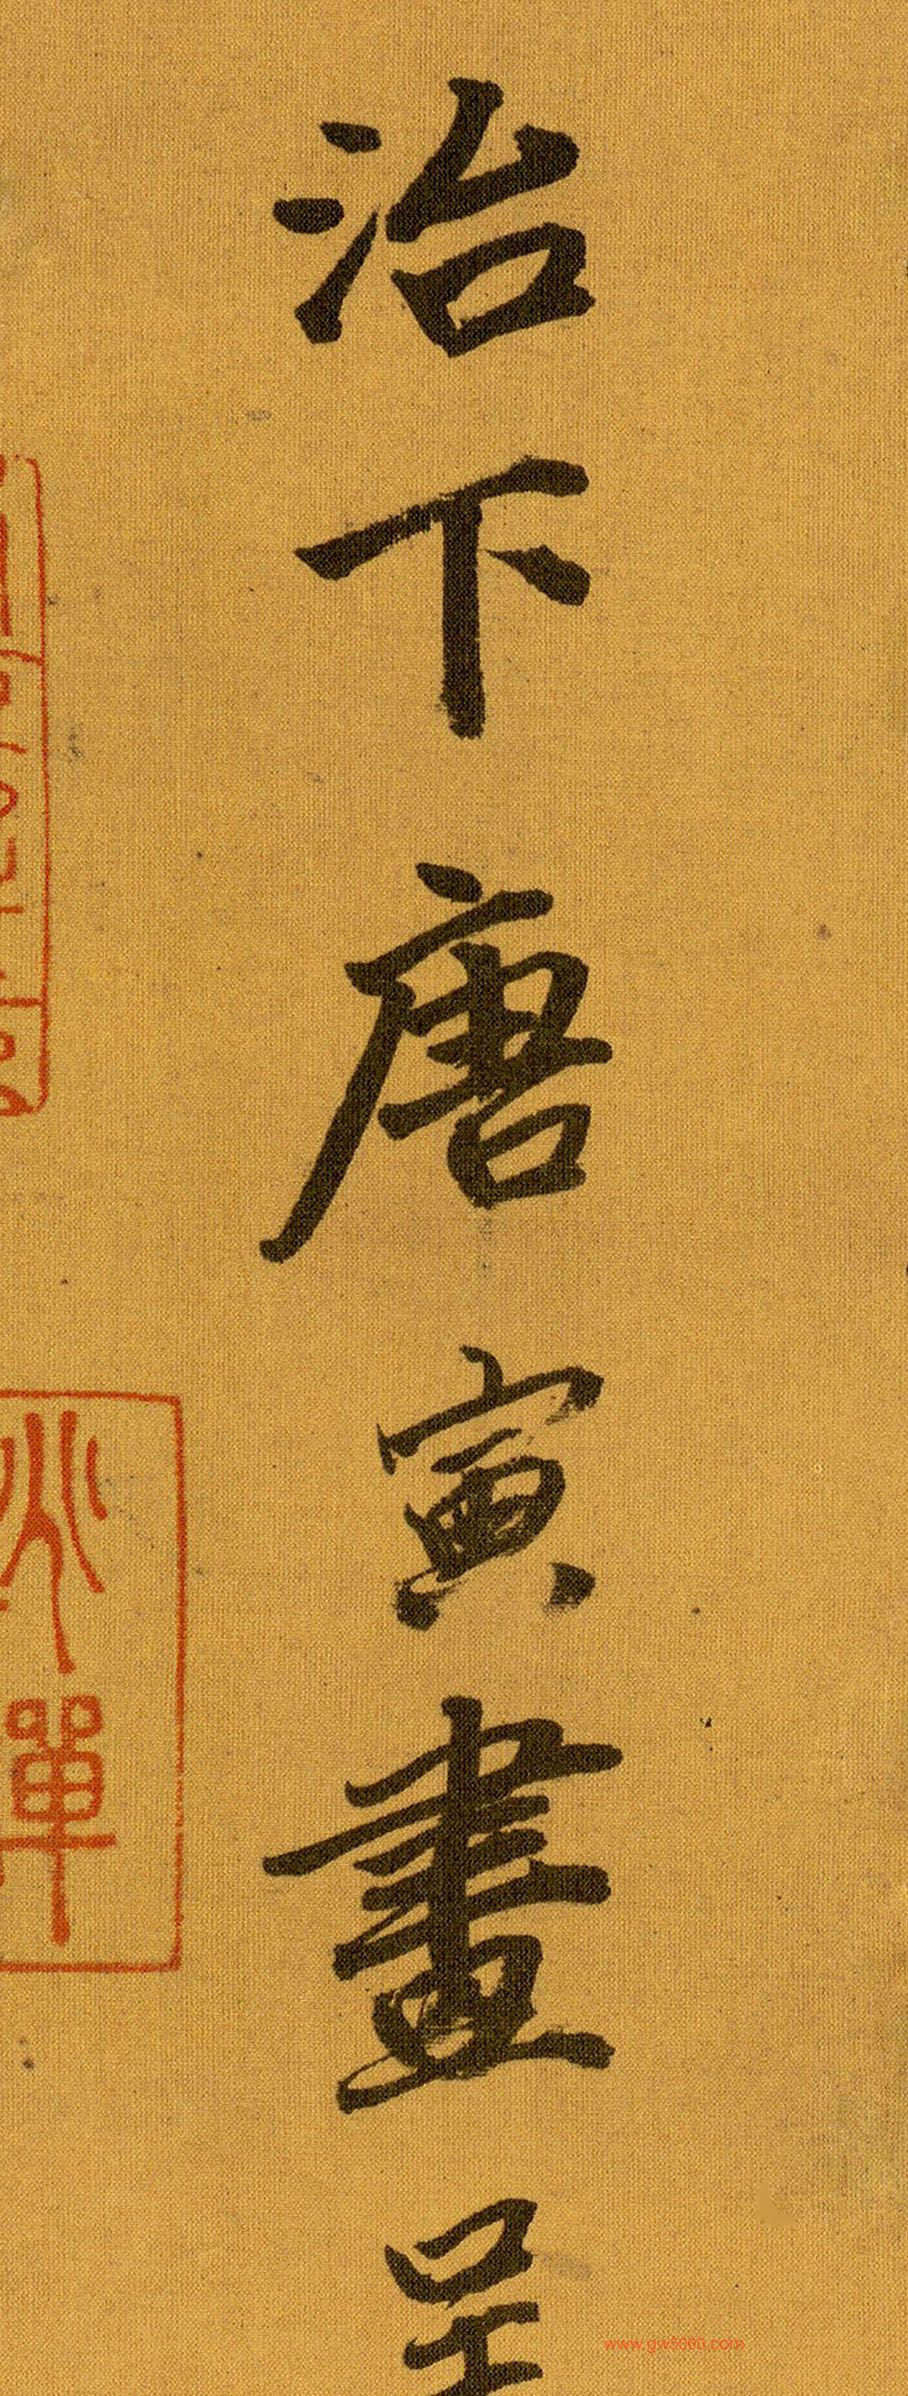 治下唐寅畫呈
單
www.gw5000.com